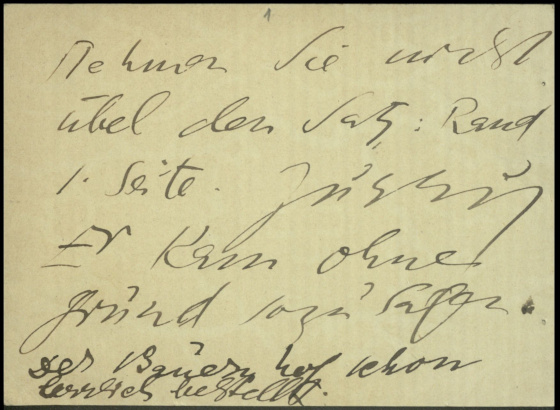 1
Nehmen Sie nicht
übel den Satz: Rand
1. Seite.
Er kam ohne
grund sozusagen.
Der Bauernhof schon
herrlich bestellt.